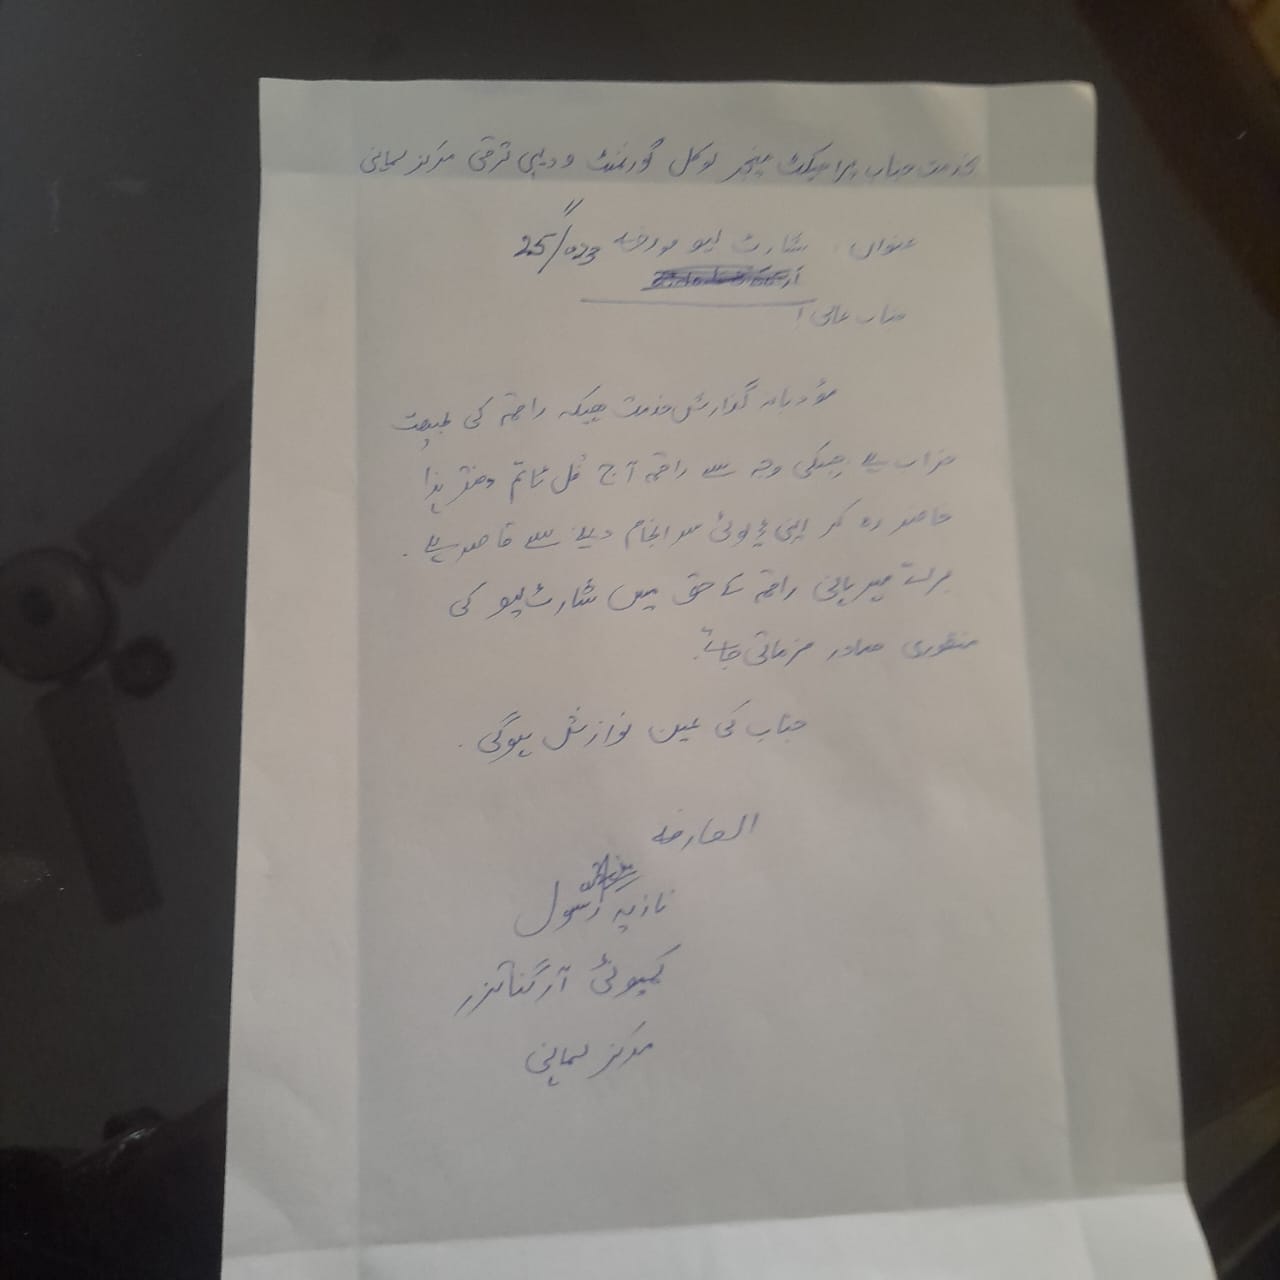 بخدمت جناب پراجیکٹ مینجر لوکل گورنمنٹ و دیہی ترقی مرکز سماہنی
عنوان: شارٹ لیو مورخہ
جناب عالی!
مؤدبانہ گذارش خدمت ہیکہ راقمہ کی طبیعت
خراب ہے جسکی وجہ سے راقمہ آج فل ٹائم دفتر ہذا
حاضر رہ کر اپنی ڈیوٹی سر انجام دینے سے قاصر ہے.
برائے مہربانی راقمہ کے حق میں شارٹ لیو کی
منظوری صادر فرمائی جائے.
جناب کی عین نوازش ہوگی.
العارضہ
نازیہ رسول
کمیونٹی آرگنائزر
مرکز سماہنی